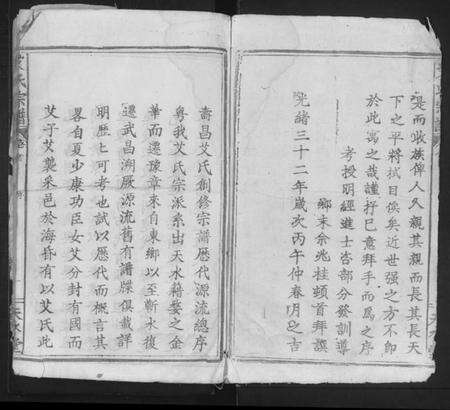 是而收族俾人人親其親而長其長天
下之平將拭目俟矣近世强之方不卽
於此寓之哉謹抒巳意拜手而爲之序
考授明經進士咨部分發訓導
鄉末余兆桂頓首拜譔
光緒三十二年歲次丙午仲春月之吉
壽昌艾氏創修宗譜歷代源流總序
粤我艾氏宗派系出天水藉婺之金
華而遷豫章來自東鄉以至蘄水復
遷武昌溯厥源流舊有譜牒俱載詳
明歷七可考也試以歷代而概言其
畧自夏少康功臣女艾分封有國而
艾子艾襲采邑於海昏有以艾氏此
艾氏宗譜
天水堂